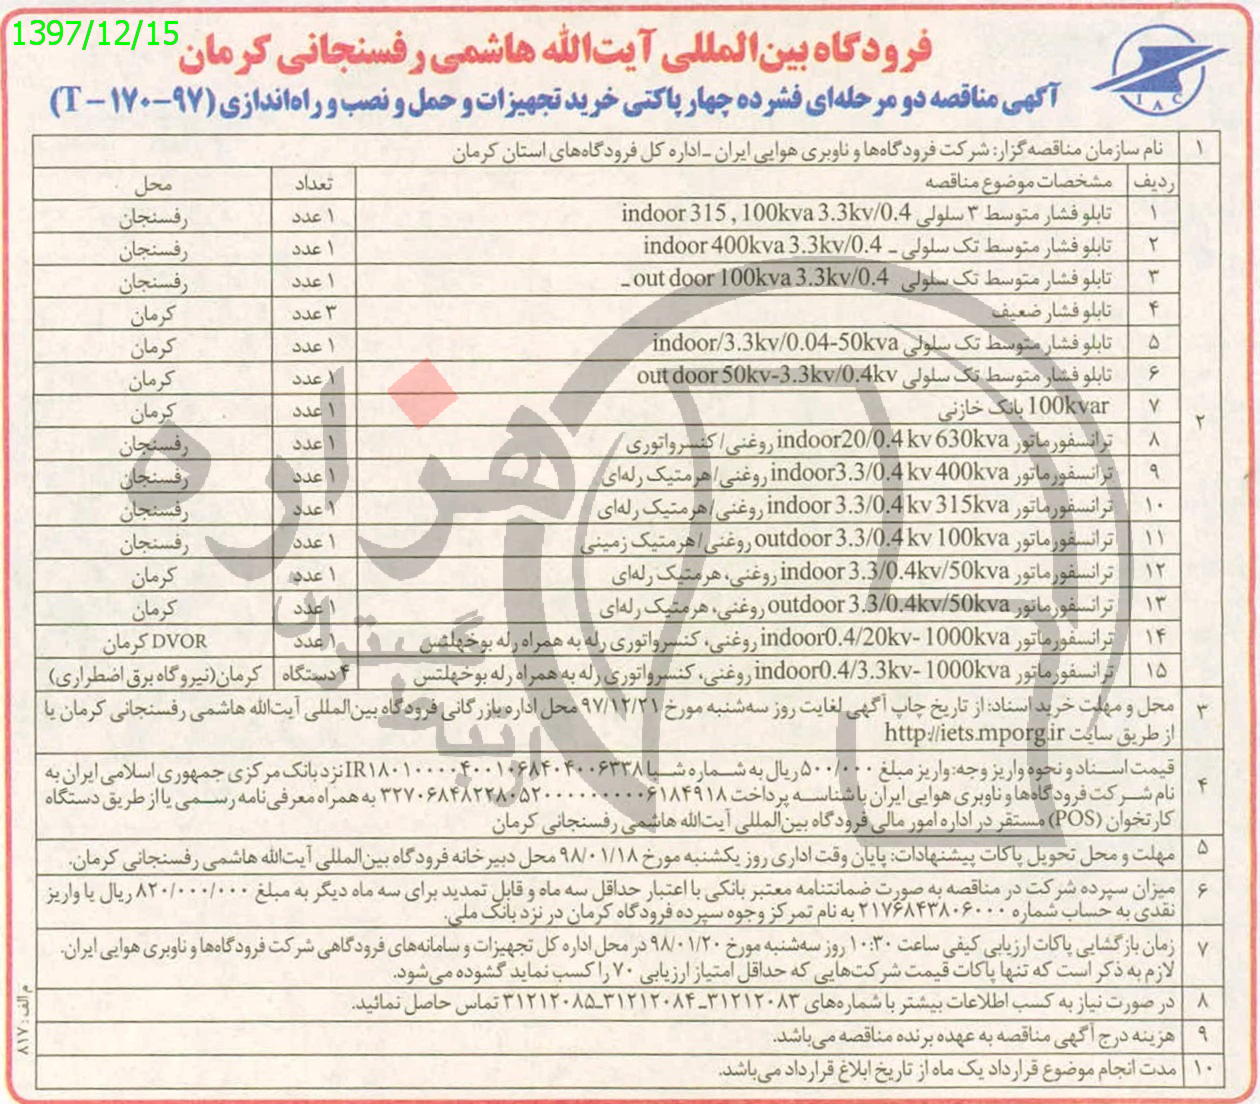 1397/12/15
فرودگاه بین‌المللی آیت‌الله هاشمی رفسنجانی کرمان
آگهی مناقصه دو مرحله‌ای فشرده چهار پاکتی خرید تجهیزات و حمل و نصب و راه‌اندازی (T-۱۷۰-۹۷)
IAC
۱ نام سازمان مناقصه‌گزار: شرکت فرودگاه‌ها و ناوبری هوایی ایران ـ اداره کل فرودگاه‌های استان کرمان
۲
ردیف مشخصات موضوع مناقصه تعداد محل
۱ تابلو فشار متوسط ۳ سلولی indoor 315 , 100kva 3.3kv/0.4 ۱ عدد رفسنجان
۲ تابلو فشار متوسط تک سلولی ـ indoor 400kva 3.3kv/0.4 ۱ عدد رفسنجان
۳ تابلو فشار متوسط تک سلولی out door 100kva 3.3kv/0.4 ـ ۱ عدد رفسنجان
۴ تابلو فشار ضعیف ۳ عدد کرمان
۵ تابلو فشار متوسط تک سلولی indoor/3.3kv/0.04-50kva ۱ عدد کرمان
۶ تابلو فشار متوسط تک سلولی out door 50kv-3.3kv/0.4kv ۱ عدد کرمان
۷ 100kvar بانک خازنی ۱ عدد کرمان
۸ ترانسفورماتور indoor20/0.4 kv 630kva روغنی/ کنسرواتوری/ ۱ عدد رفسنجان
۹ ترانسفورماتور indoor3.3/0.4 kv 400kva روغنی/هرمتیک رله‌ای ۱ عدد رفسنجان
۱۰ ترانسفورماتور indoor 3.3/0.4 kv 315kva روغنی/هرمتیک رله‌ای ۱ عدد رفسنجان
۱۱ ترانسفورماتور outdoor 3.3/0.4 kv 100kva روغنی/هرمتیک زمینی ۱ عدد رفسنجان
۱۲ ترانسفورماتور indoor 3.3/0.4kv/50kva روغنی، هرمتیک رله‌ای ۱ عدد کرمان
۱۳ ترانسفورماتور outdoor 3.3/0.4kv/50kva روغنی، هرمتیک رله‌ای ۱ عدد کرمان
۱۴ ترانسفورماتور indoor0.4/20kv- 1000kva روغنی، کنسرواتوری رله به همراه رله بوخهلتس ۱ عدد DVOR کرمان
۱۵ ترانسفورماتور indoor0.4/3.3kv- 1000kva روغنی، کنسرواتوری رله به همراه رله بوخهلتس ۴ دستگاه کرمان(نیروگاه برق اضطراری)
۳ محل و مهلت خرید اسناد: از تاریخ چاپ آگهی لغایت روز سه‌شنبه مورخ ۹۷/۱۲/۲۱ محل اداره بازرگانی فرودگاه بین‌المللی آیت‌الله هاشمی رفسنجانی کرمان یا
از طریق سایت http://iets.mporg.ir
۴ قیمت اسناد و نحوه واریز وجه: واریز مبلغ ۵۰۰/۰۰۰ ریال به شماره شبا IR۱۸۰۱۰۰۰۰۴۰۰۱۰۶۸۴۰۴۰۰۶۳۳۸ نزد بانک مرکزی جمهوری اسلامی ایران به
نام شرکت فرودگاه‌ها و ناوبری هوایی ایران با شناسه پرداخت ۳۲۷۰۶۸۴۸۲۲۸۰۵۲۰۰۰۰۰۰۰۰۰۰۶۱۸۴۹۱۸ به همراه معرفی‌نامه رسمی یا از طریق دستگاه
کارتخوان (POS) مستقر در اداره امور مالی فرودگاه بین‌المللی آیت‌الله هاشمی رفسنجانی کرمان
۵ مهلت و محل تحویل پاکات پیشنهادات: پایان وقت اداری روز یکشنبه مورخ ۹۸/۰۱/۱۸ محل دبیرخانه فرودگاه بین‌المللی آیت‌الله هاشمی رفسنجانی کرمان.
۶ میزان سپرده شرکت در مناقصه به صورت ضمانتنامه معتبر بانکی با اعتبار حداقل سه ماه و قابل تمدید برای سه ماه دیگر به مبلغ ۸۲۰/۰۰۰/۰۰۰ ریال یا واریز
نقدی به حساب شماره ۲۱۷۶۸۴۳۸۰۶۰۰۰ به نام تمرکز وجوه سپرده فرودگاه کرمان در نزد بانک ملی.
۷ زمان بازگشایی پاکات ارزیابی کیفی ساعت ۱۰:۳۰ روز سه‌شنبه مورخ ۹۸/۰۱/۲۰ در محل اداره کل تجهیزات و سامانه‌های فرودگاهی شرکت فرودگاه‌ها و ناوبری هوایی ایران.
لازم به ذکر است که تنها پاکات قیمت شرکت‌هایی که حداقل امتیاز ارزیابی ۷۰ را کسب نماید گشوده می‌شود.
۸ در صورت نیاز به کسب اطلاعات بیشتر با شماره‌های ۳۱۲۱۲۰۸۳ـ۳۱۲۱۲۰۸۴ـ۳۱۲۱۲۰۸۵ تماس حاصل نمائید.
۹ هزینه درج آگهی مناقصه به عهده برنده مناقصه می‌باشد.
۱۰ مدت انجام موضوع قرارداد یک ماه از تاریخ ابلاغ قرارداد می‌باشد.
م الف: ۸۱۷
هزاره